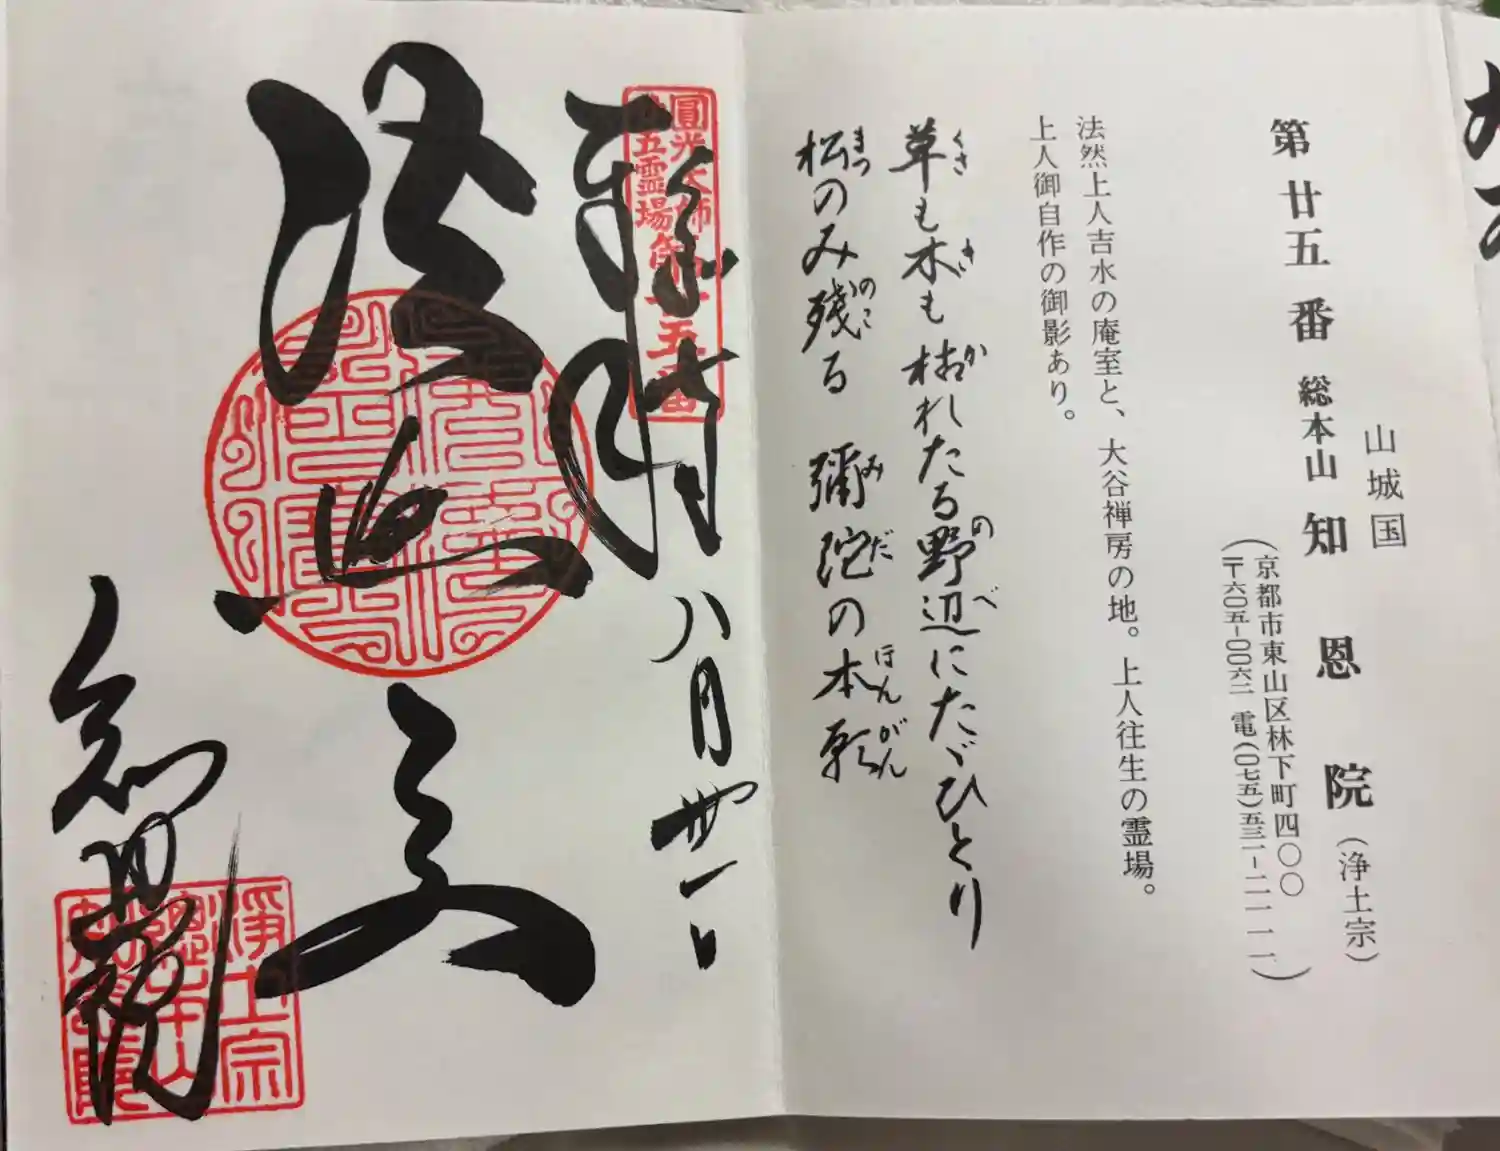 山城国
第廿五番 総本山 知恩院(浄土宗)
(京都市東山区林下町四〇〇
〒六〇五-〇〇六二 電(〇七五)五三一-二一一一)
法然上人吉水の庵室と、大谷禅房の地。上人往生の霊場。
上人御自作の御影あり。
草も木も枯れたる野辺にたゞひとり
くさ き か の べ
松のみ残る 彌陀の本願
まつ のこ み だ ほんがん
圓光大師
五霊場第廿五番
八月卅一日
知恩院
浄土宗
總本山
知恩院